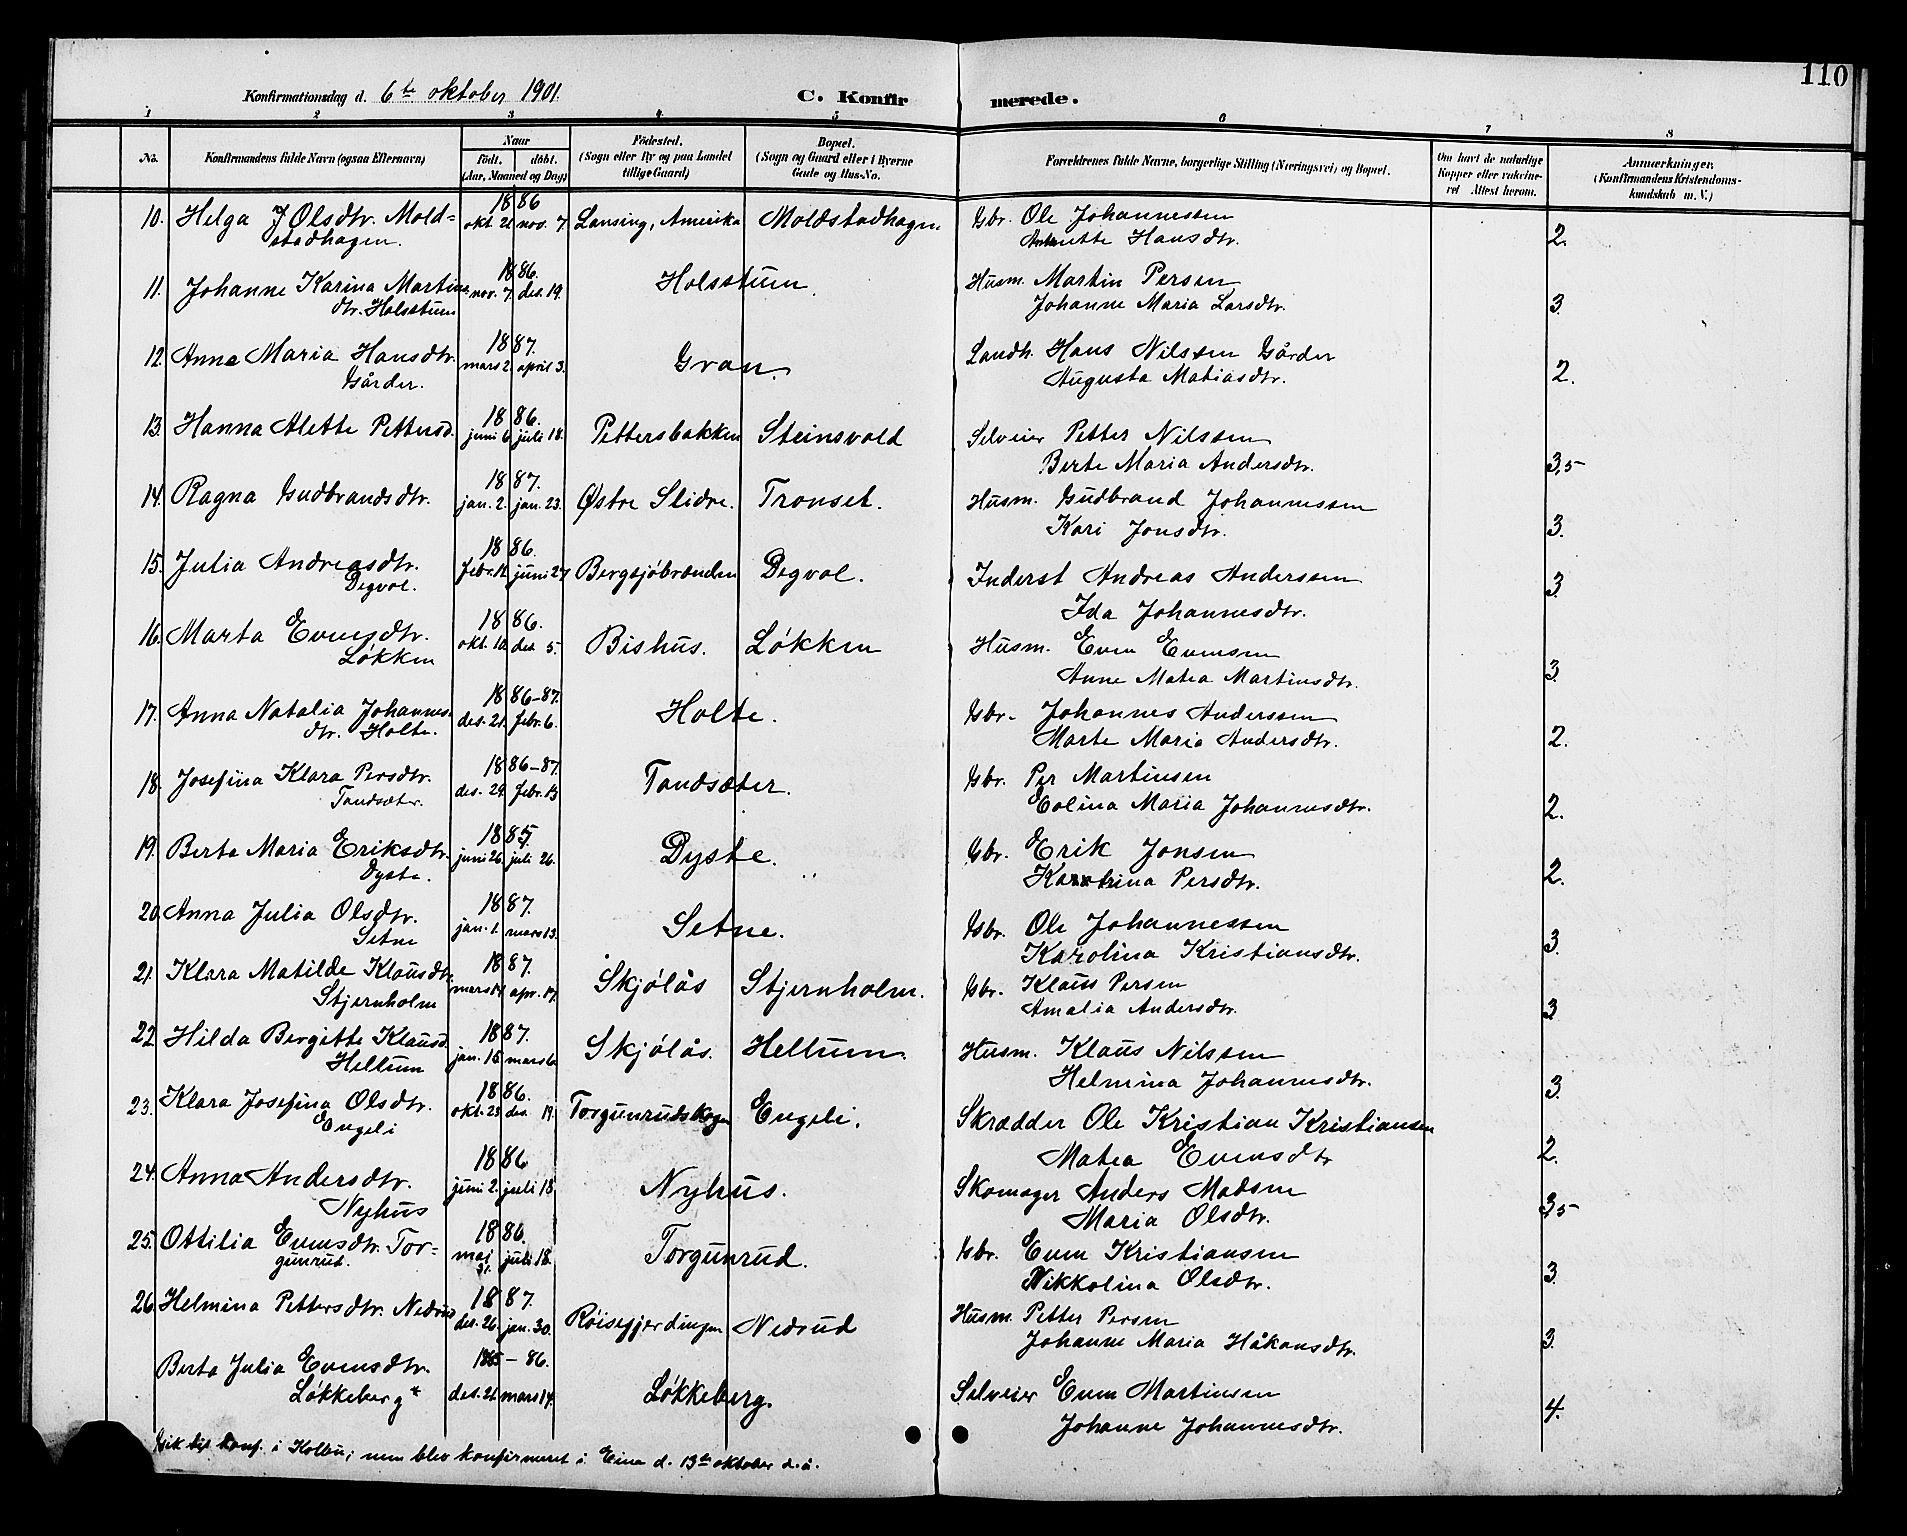 110
Konfirmationsdag d. 6te oktober 1901. C. Konfirmerede.
1 2 3 4 5 6 7 8
No. Konfirmandens fulde Navn (ogsaa Efternavn) Naar født. døbt. (Aar, Maaned og Dag) Fødested. (Sogn eller By og paa Landet tillige Gaard) Bopæl. (Sogn og Gaard eller i Byerne Gade og Hus-No. Forældrenes fulde Navne, borgerlige Stilling (Næringsvei) og Bopæl. Om havt de naturlige Kopper eller vakcineret Attest herom. Anmærkninger. (Konfirmandens Kristendomskundskab m. V.)
10. Helga J Olsdtr. Mold= 1886 okt. 21 nov. 7. Lansing, Amerika Moldstadhagen Gbr. Ole Johannessen
stadhagen. Hansdtr. 2.
11. Johanne Karina Martins 1886. nov. 7. des. 19. Holsstuen Husm. Martin Persen
dtr. Holsstuen Johanne Maria Larsdtr. 3.
12. Anna Maria Hansdtr. 1887. mars 2. april 3. Gran. Landh. Hans Nilssen Gårder
Gårder. Augusta Matiasdtr. 2.
13. Hanna Alette Pettersd. 1886. juni 6. juli 18. Pettersbakken Steinsvold Selveier Petter Nilssen
Berte Maria Andersdtr. 3,5
14. Ragna Gudbrandsdtr. 1887. jan. 2. jan. 23. Østre Slidre. Tronset. Husm. Gudbrand Johannessen
Kari Jonsdtr. 3.
15. Julia Andreasdtr. 1886. febr. juni 27 Bergsjöbraaden Degvol. Inderst Andreas Anderssen
Degvol. Ida Johannesdtr. 3.
16. Marta Evensdtr. 1886. okt. 10. des. 5. Bishus. Løkken Husm. Even Evensen
Løkken Anne Matea Martinsdtr. 3.
17. Anna Natalia Johannes 1886-87. des. 21. febr. 6. Holte. Gbr. Johannes Anderssen
dtr. Holte. Marte Maria Andersdtr. 2.
18. Josefina Klara Persdtr. 1886-87. des. 29. febr. 13 Tandsæter. Gbr. Per Martinsen
Tandsæter. Eolina Maria Johannesdtr. 2.
19. Berta Maria Eriksdtr. 1885 juni 26. juli 26. Dyste. Gbr. Erik Jonsen
Dyste. Katrina Persdtr. 2.
20. Anna Julia Olsdtr. 1887. jan. 1. mars 13. Setne. Gbr. Ole Johannessen
Setne Karolina Kristiansdtr. 3.
21. Klara Matilde Klausdtr. 1887. mars apr. 17. Skjölås Stjernholm. Gbr. Klaus Persen
Stjernholm Amalia Andersdtr. 3
22. Hilda Bergitte Klausd. 1887. jan. 15. mars 6. Skjölås. Hellum. Husm. Klaus Nilssen
Hellum Helmina Johannesdtr. 3.
23. Klara Josefina Olsdtr. 1886. okt. 23 des. 19. Torgunrudskogen Engeli. Skrædder Ole Kristian Kristiansen
Engeli Matea Evensdtr 2.
24. Anna Andersdtr. 1886 juni 2. juli 18. Nyhus. Skomager Anders Madsen
Nyhus Maria Olsdtr. 3,5
25. Ottilia Evensdtr. Tor= 1886. mai 31. juli 18. Torgunrud. Gbr. Even Kristiansen
gunrud. Nikkolina Olsdtr. 3.
26. Helmina Pettersdtr. Nedrud 1887. des. 26. jan. 30. Röisegjerdingen Nedrud Husm. Petter Persen
Johanne Maria Håkonsdtr. 3.
Berta Julia Evensdtr. 1885-86. des. 21. mars 14. Løkkeberg. Selveier Even Martinsen
Løkkeberg* Johanne Johannesdtr. 4.
Gik til konf. i Kolbu; men blev konfirmeret i Eina d. 13de oktober d. å.